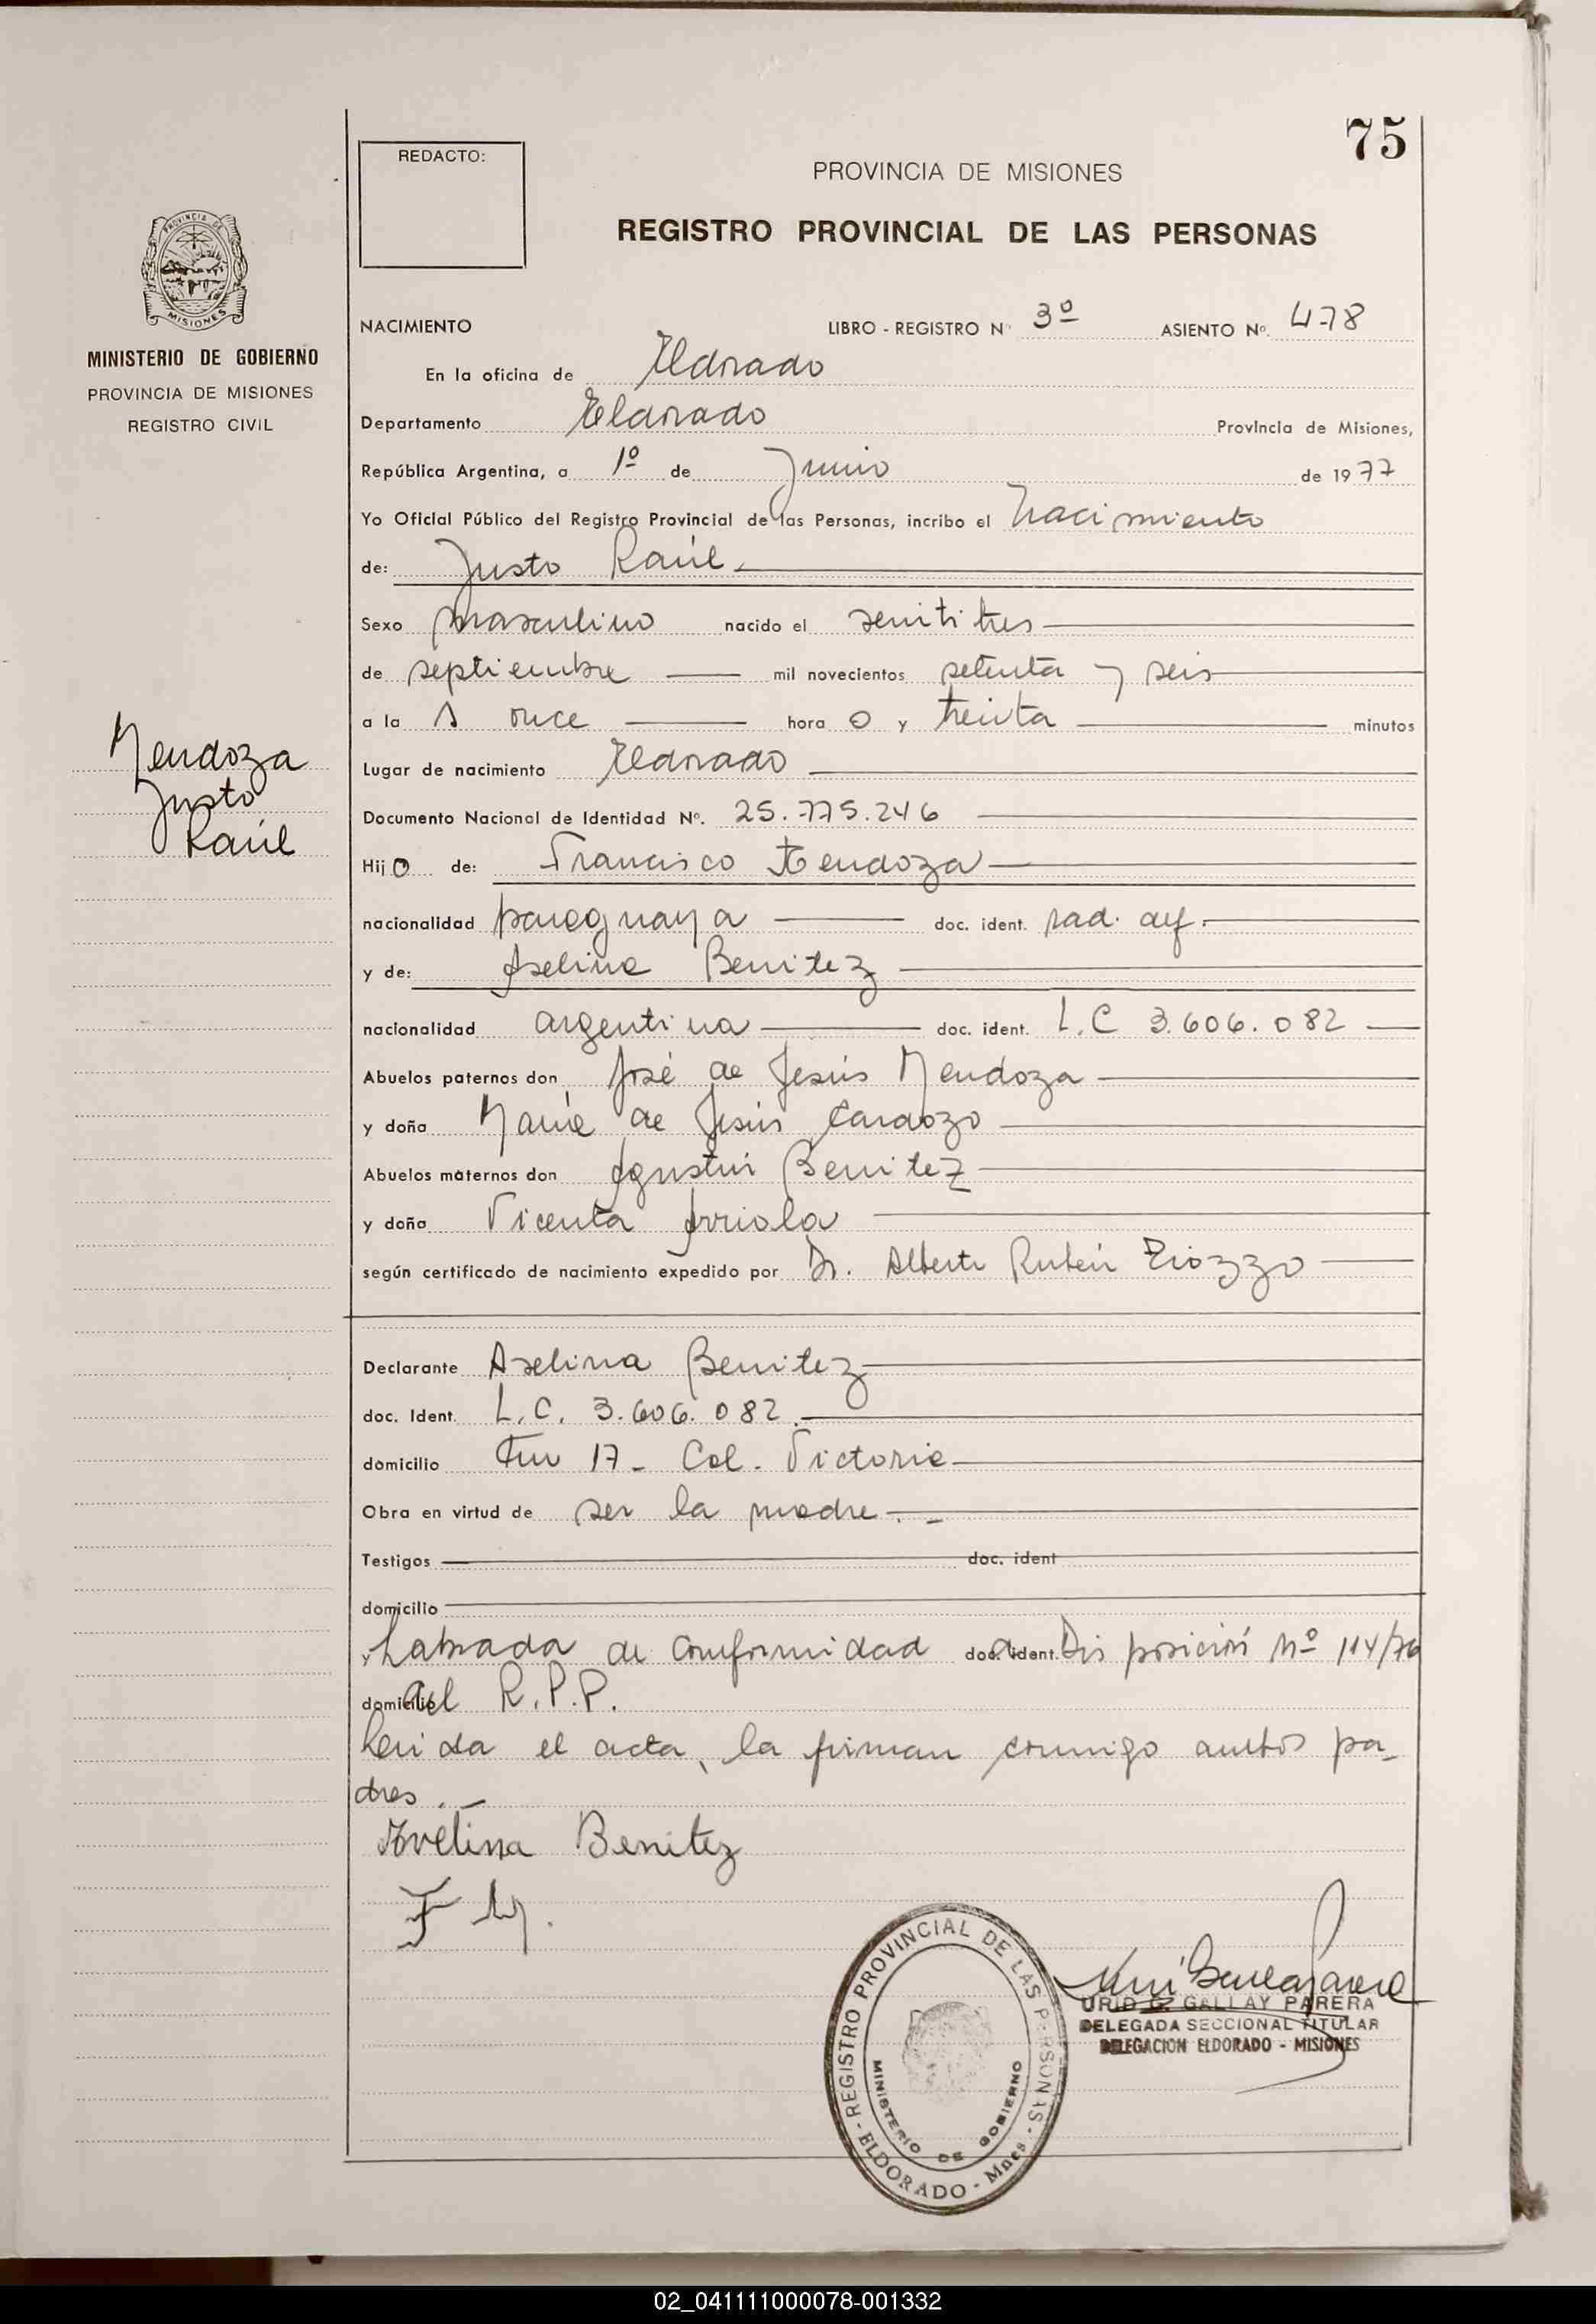 75
REDACTO:
PROVINCIA DE MISIONES
REGISTRO PROVINCIAL DE LAS PERSONAS
PROVINCIA DE
MISIONES
MINISTERIO DE GOBIERNO
PROVINCIA DE MISIONES
REGISTRO CIVIL
NACIMIENTO LIBRO - REGISTRO Nº 3º ASIENTO Nº. 478
En la oficina de Eldorado
Departamento Eldorado Provincia de Misiones,
República Argentina, a 1º de Junio de 1977
Yo Oficial Público del Registro Provincial de las Personas, incribo el nacimiento
de: Justo Raúl.
Sexo masculino nacido el veintitres
de septiembre mil novecientos setenta y seis
a la s once hora o y treinta minutos
Mendoza
Justo
Raúl
Lugar de nacimiento Eldorado
Documento Nacional de Identidad Nº. 25.775.246
Hij o de: Francisco Mendoza
nacionalidad paraguaya doc. ident. rad.
y de: Avelina Benitez
nacionalidad argentina doc. ident. L.C 3.606.082
Abuelos paternos don José de Jesús Mendoza
y doña María de Jesús Cardozo
Abuelos maternos don Agustín Benitez
y doña Vicenta Arriola
según certificado de nacimiento expedido por Dr. Alberto Rubén
Declarante Avelina Benitez
doc. Ident. L.C. 3.606.082.
domicilio Km 17 - Col. Victoria
Obra en virtud de ser la madre. -
Testigos doc. ident
domicilio
y Labrada de conformidad doc. ident. a Disposición Nº 114/76
domicilio del R.P.P.
Leida el acta, la firman conmigo ambos pa-
dres. -
Avelina Benitez
F M.
REGISTRO PROVINCIAL DE LAS PERSONAS
MINISTERIO DE GOBIERNO
- ELDORADO - Mnes. -
URID G. GALLAY PARERA
DELEGADA SECCIONAL TITULAR
DELEGACION ELDORADO - MISIONES
02_041111000078-001332